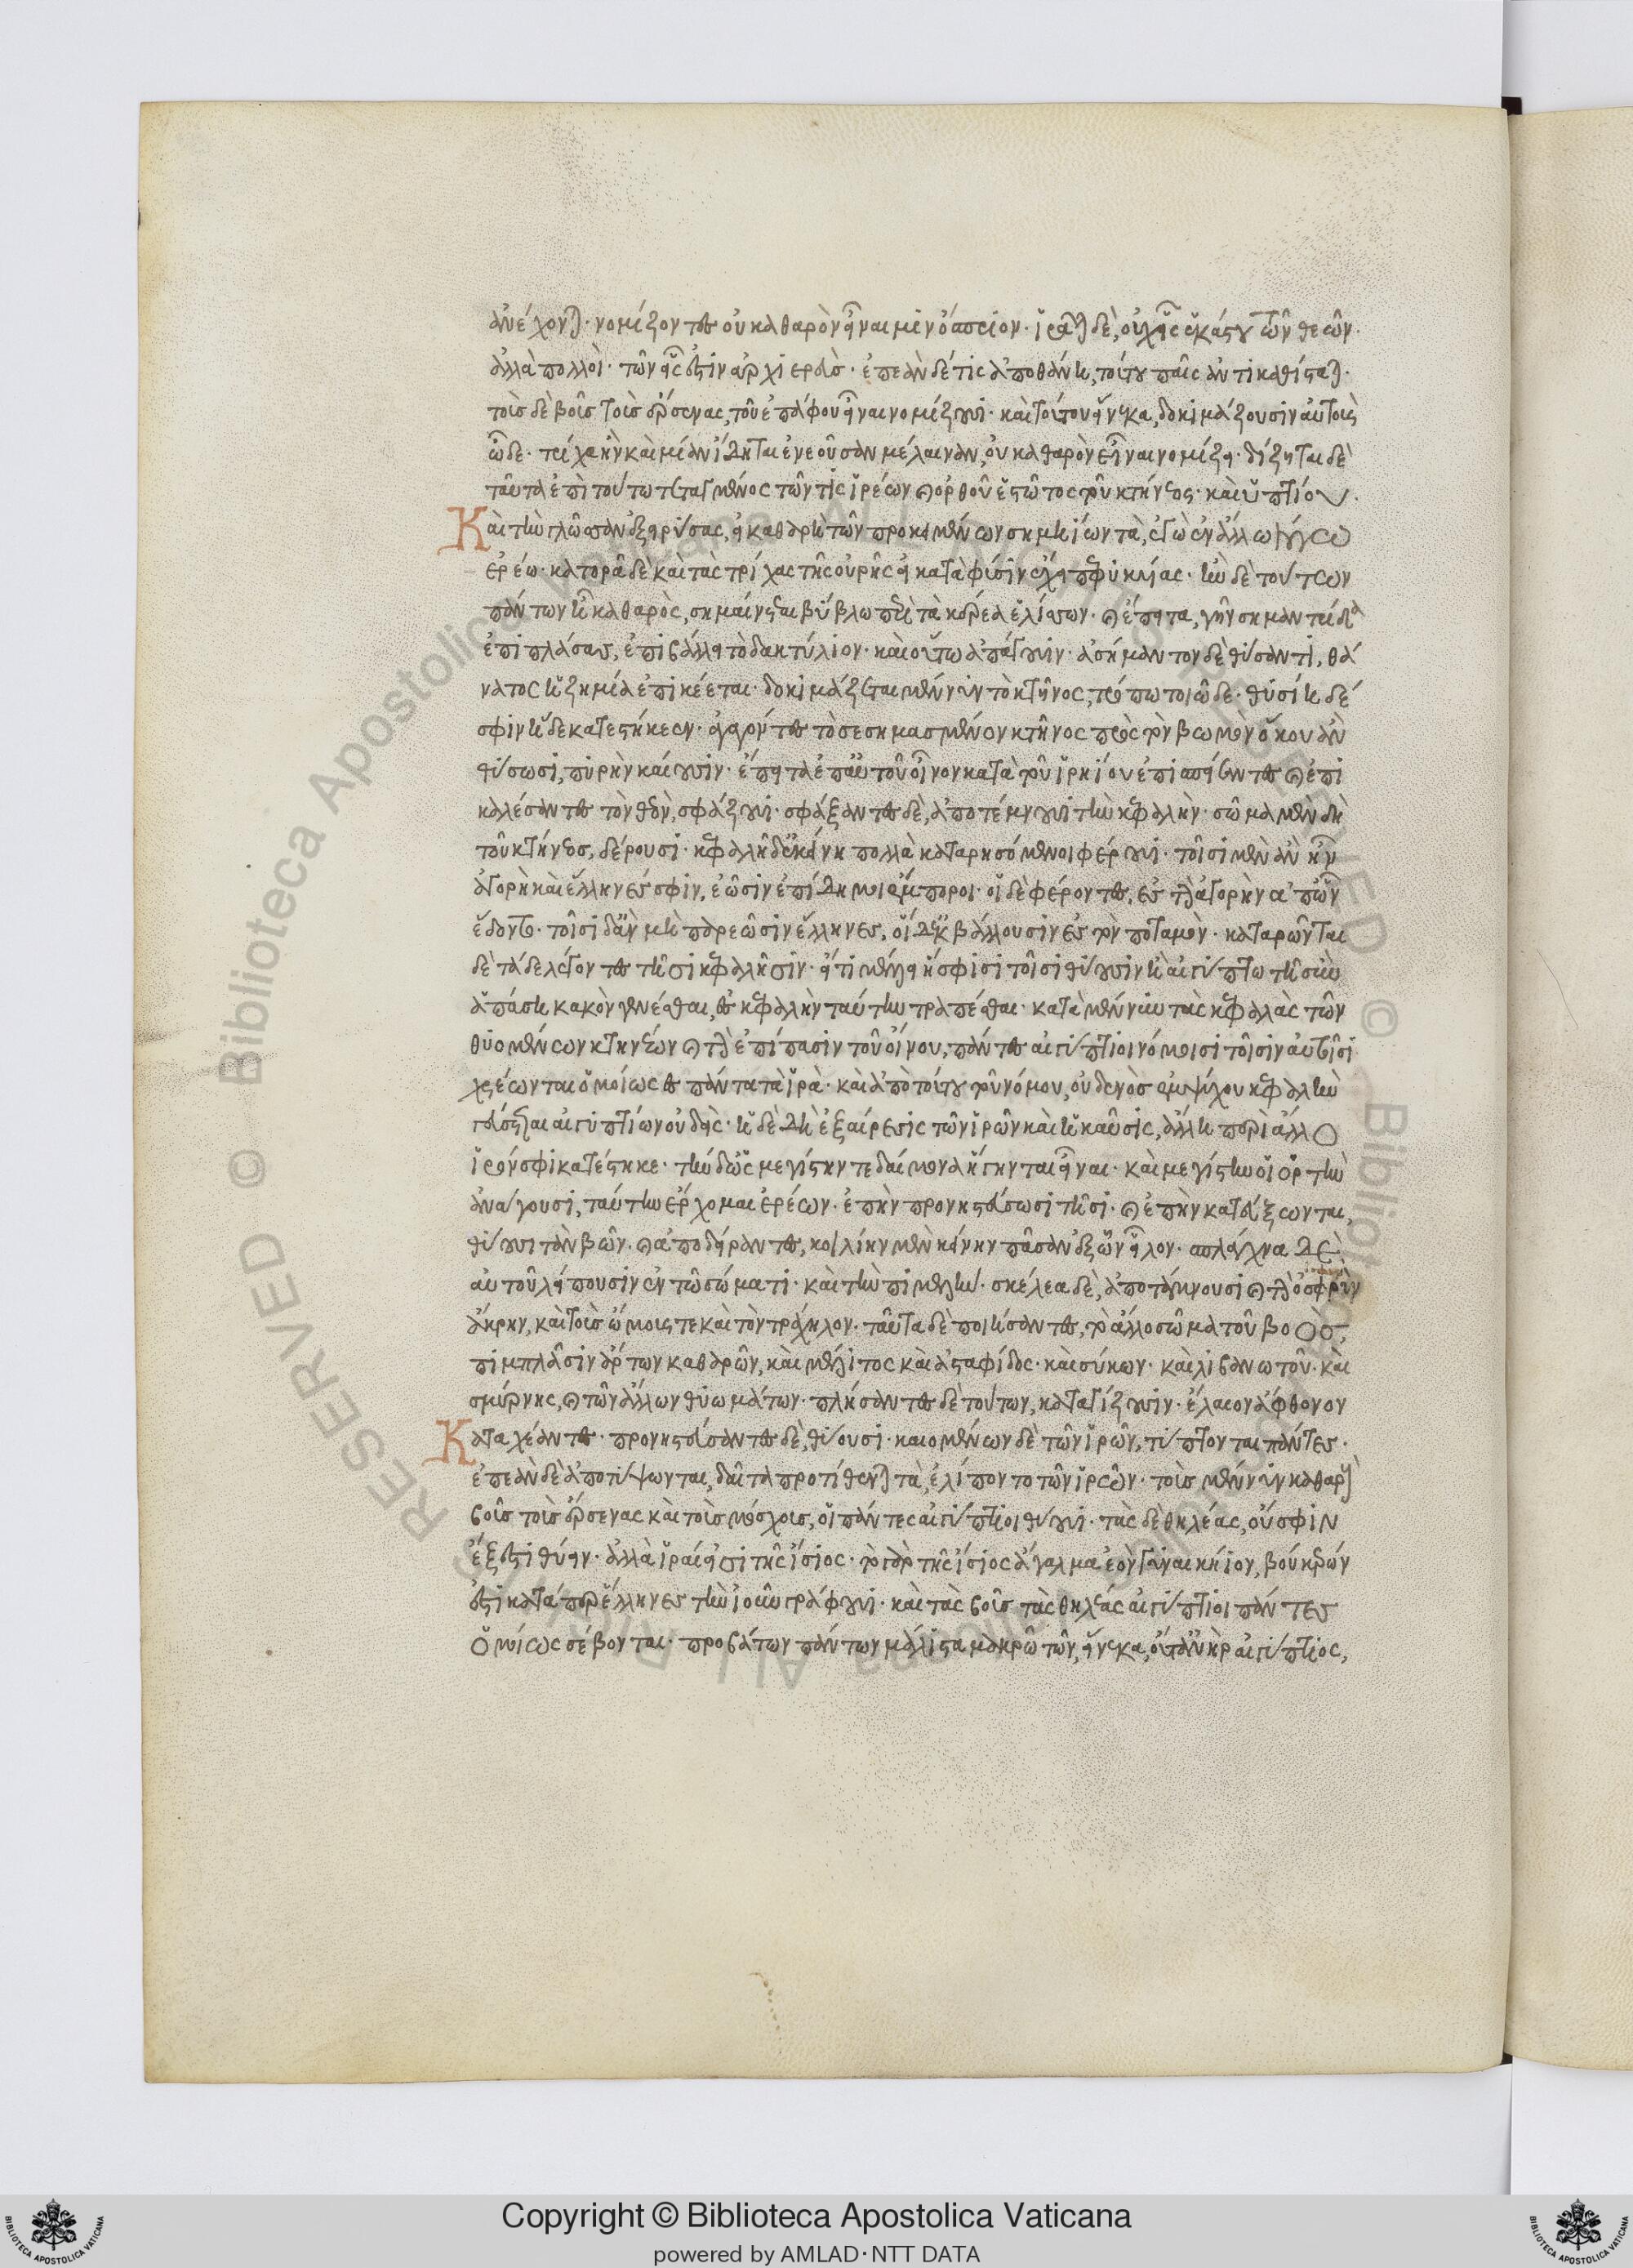 ἀνέχονται· νομίζοντες οὐ καθαρὸν εἶναι μιν ὄσπριον· ἱρᾶται δὲ, οὐκ εἷς ἑκάστου τῶν θεῶν·
ἀλλὰ πολλοί· τῶν εἷς ἐστιν ἀρχιερεύς· ἐπεὰν δέ τις ἀποθάνη, τούτου παῖς ἀντικαθίσταται·
τοὺς δὲ βοῦς τοὺς ἔρσενας, τοῦ ἐπάφου εἶναι νομίζουσι· καὶ τούτου εἵνεκα, δοκιμάζουσιν αὐτοὺς
ὧδε· τρίχα ἢν καὶ μίαν ἴδηται ἐνεοῦσαν μέλαιναν, οὐ καθαρὸν εἶναι νομίζει· δίζηται δὲ
ταῦτα ἐπὶ τούτω τεταγμένος τῶν τις ἱρέων καὶ ὀρθοῦ ἑστῶτος τοῦ κτήνεος· καὶ ὑπτίου·
Καὶ τὴν γλῶσσαν ἐξειρύσας, εἰ καθαρὴ τῶν προκειμένων σημηίων τὰ, ἐγὼ ἐν ἄλλω λόγω
ἐρέω· κατορᾶ δὲ καὶ τὰς τρίχας τῆς οὐρῆς εἰ κατὰ φύσιν ἔχει πεφυκυίας· ἢν δὲ τούτων
πάντων ᾖ καθαρὸς, σημαίνεται βύβλω περὶ τὰ κέρεα ἑλίσσων· καὶ ἔπειτα, γῆν σημαντρίδα
ἐπιπλάσας, ἐπιβάλλει τὸ δακτύλιον· καὶ οὕτω ἀπάγουσιν· ἀσήμαντον δὲ θύσαντι, θά
νατος ἡ ζημία ἐπικέεται· δοκιμάζεται μέν νυν τὸ κτῆνος, τρόπω τοιῶδε· θυσίη δέ
σφιν ἥδε κατεστήκεεν· ἀγαγόντες τὸ σεσημασμένον κτῆνος πρὸς τὸν βωμὸν ὅκου ἂν
θύωσι, πυρὴν καίουσιν· ἔπειτα ἐπ' αὐτοῦ οἶνον κατὰ τοῦ ἱρηίου ἐπισπείσαντες καὶ ἐπι
καλέσαντες τὸν θεὸν, σφάζουσι· σφάξαντες δὲ, ἀποτέμνουσι τὴν κεφαλὴν· σῶμα μὲν δὴ
τοῦ κτήνεος, δέρουσι· κεφαλῆ δὲ κείνη πολλὰ καταρησόμενοι φέρουσι· τοῖσι μὲν ἂν ᾖ
ἀγορὴ καὶ ἕλληνές σφιν, ἔωσιν ἐπιδήμιοι ἔμποροι· οἱ δὲ φέροντες, ἐς τὴν ἀγορὴν ἀπ' ὦν
ἔδοντο· τοῖσι δ' ἂν μὴ παρέωσιν ἕλληνες, οἱ δ' ἐκβάλλουσιν ἐς τὸν ποταμὸν· καταρῶνται
δὲ τάδε λέγοντες τῆσι κεφαλῆσιν· εἴ τι μέλλει ἢ σφίσι τοῖσι θύουσιν ἢ αἰγύπτω τῆ συν
απάση κακὸν γενέσθαι, ἐς κεφαλὴν ταύτην τραπέσθαι· κατὰ μέν νυν τὰς κεφαλὰς τῶν
θυομένων κτηνέων καὶ τὴν ἐπίσπασιν τοῦ οἴνου, πάντες αἰγύπτιοι νόμοισι τοῖσιν αὐτοῖσι
χρέωνται ὁμοίως ἐς πάντα τὰ ἱρά· καὶ ἀπὸ τούτου τοῦ νόμου, οὐδενὸς ἐμψύχου κεφαλὴν
γεύσεται αἰγυπτίων οὐδείς· ἡ δὲ δὴ ἐξαίρεσις τῶν ἱρῶν καὶ ἡ καῦσις, ἄλλη περὶ ἄλλο
ἱρόν σφι κατέστηκε· τὴν δ' ὦν μεγίστην τε δαίμονα ἥγηνται εἶναι· καὶ μεγίστην οἱ ὁρτὴν
ἀνάγουσι, ταύτην ἔρχομαι ἐρέων· ἐπὴν προνηστεύσωσι τῆ ἴσι· καὶ ἐπὴν κατεύξωνται,
θύουσι τὸν βῶν· καὶ ἀποδείραντες, κοιλίην μὲν κείνην πᾶσαν ἐξ ὧν εἷλον· σπλάγχνα δὲ
αὐτοῦ λείπουσιν ἐν τῶ σώματι· καὶ τὴν πιμελήν· σκέλεα δὲ, ἀποτάμνουσι καὶ τὴν ὀσφρὺν
ἄκρην, καὶ τοὺς ὤμους τε καὶ τὸν τράχηλον· ταῦτα δὲ ποιήσαντες, τὸ ἄλλο σῶμα τοῦ βοὸς,
πιμπλᾶσιν ἄρτων καθαρῶν, καὶ μέλιτος καὶ ἀσταφίδος· καὶ σύκων· καὶ λιβανωτοῦ· καὶ
σμύρνης, καὶ τῶν ἄλλων θυωμάτων· πλήσαντες δὲ τούτων, καταγίζουσιν· ἔλαιον ἄφθονον
Καταχέαντες· προνηστεύσαντες δὲ, θύουσι· καιομένων δὲ τῶν ἱρῶν, τύπτονται πάντες·
ἐπεὰν δὲ ἀποτύψωνται, δαῖτα προτίθενται τὰ, ἐλίποντο τῶν ἱρέων· τοὺς μέν νυν καθαροὺς
βοῦς τοὺς ἔρσενας καὶ τοὺς μόσχους, οἱ πάντες αἰγύπτιοι θύουσι· τὰς δὲ θηλέας, οὔ σφιν
ἔξεστι θύειν· ἀλλὰ ἱραί εἰσι τῆς ἴσιος· τὸ γὰρ τῆς ἴσιος ἄγαλμα ἐὸν γυναικήιον, βούκερών
ἐστι κατά περ ἕλληνες τὴν ἰοῦν γράφουσι· καὶ τὰς βοῦς τὰς θηλέας αἰγύπτιοι πάντες
ὁμοίως σέβονται· προβάτων πάντων μάλιστα μακρῶ τῶν, εἵνεκα, οὔτ' ἀνὴρ αἰγύπτιος,
Copyright © Biblioteca Apostolica Vaticana
powered by AMLAD·NTT DATA